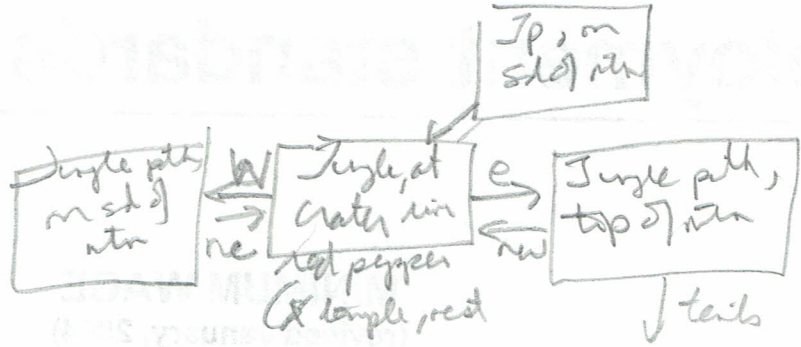 Jp, on
sd of mtn
Jungle path,
on sd of
mtn
W
ne
Jungle, at
crater rim
red pepper
(& temple, rest
e
nw
Jungle path,
top of mtn